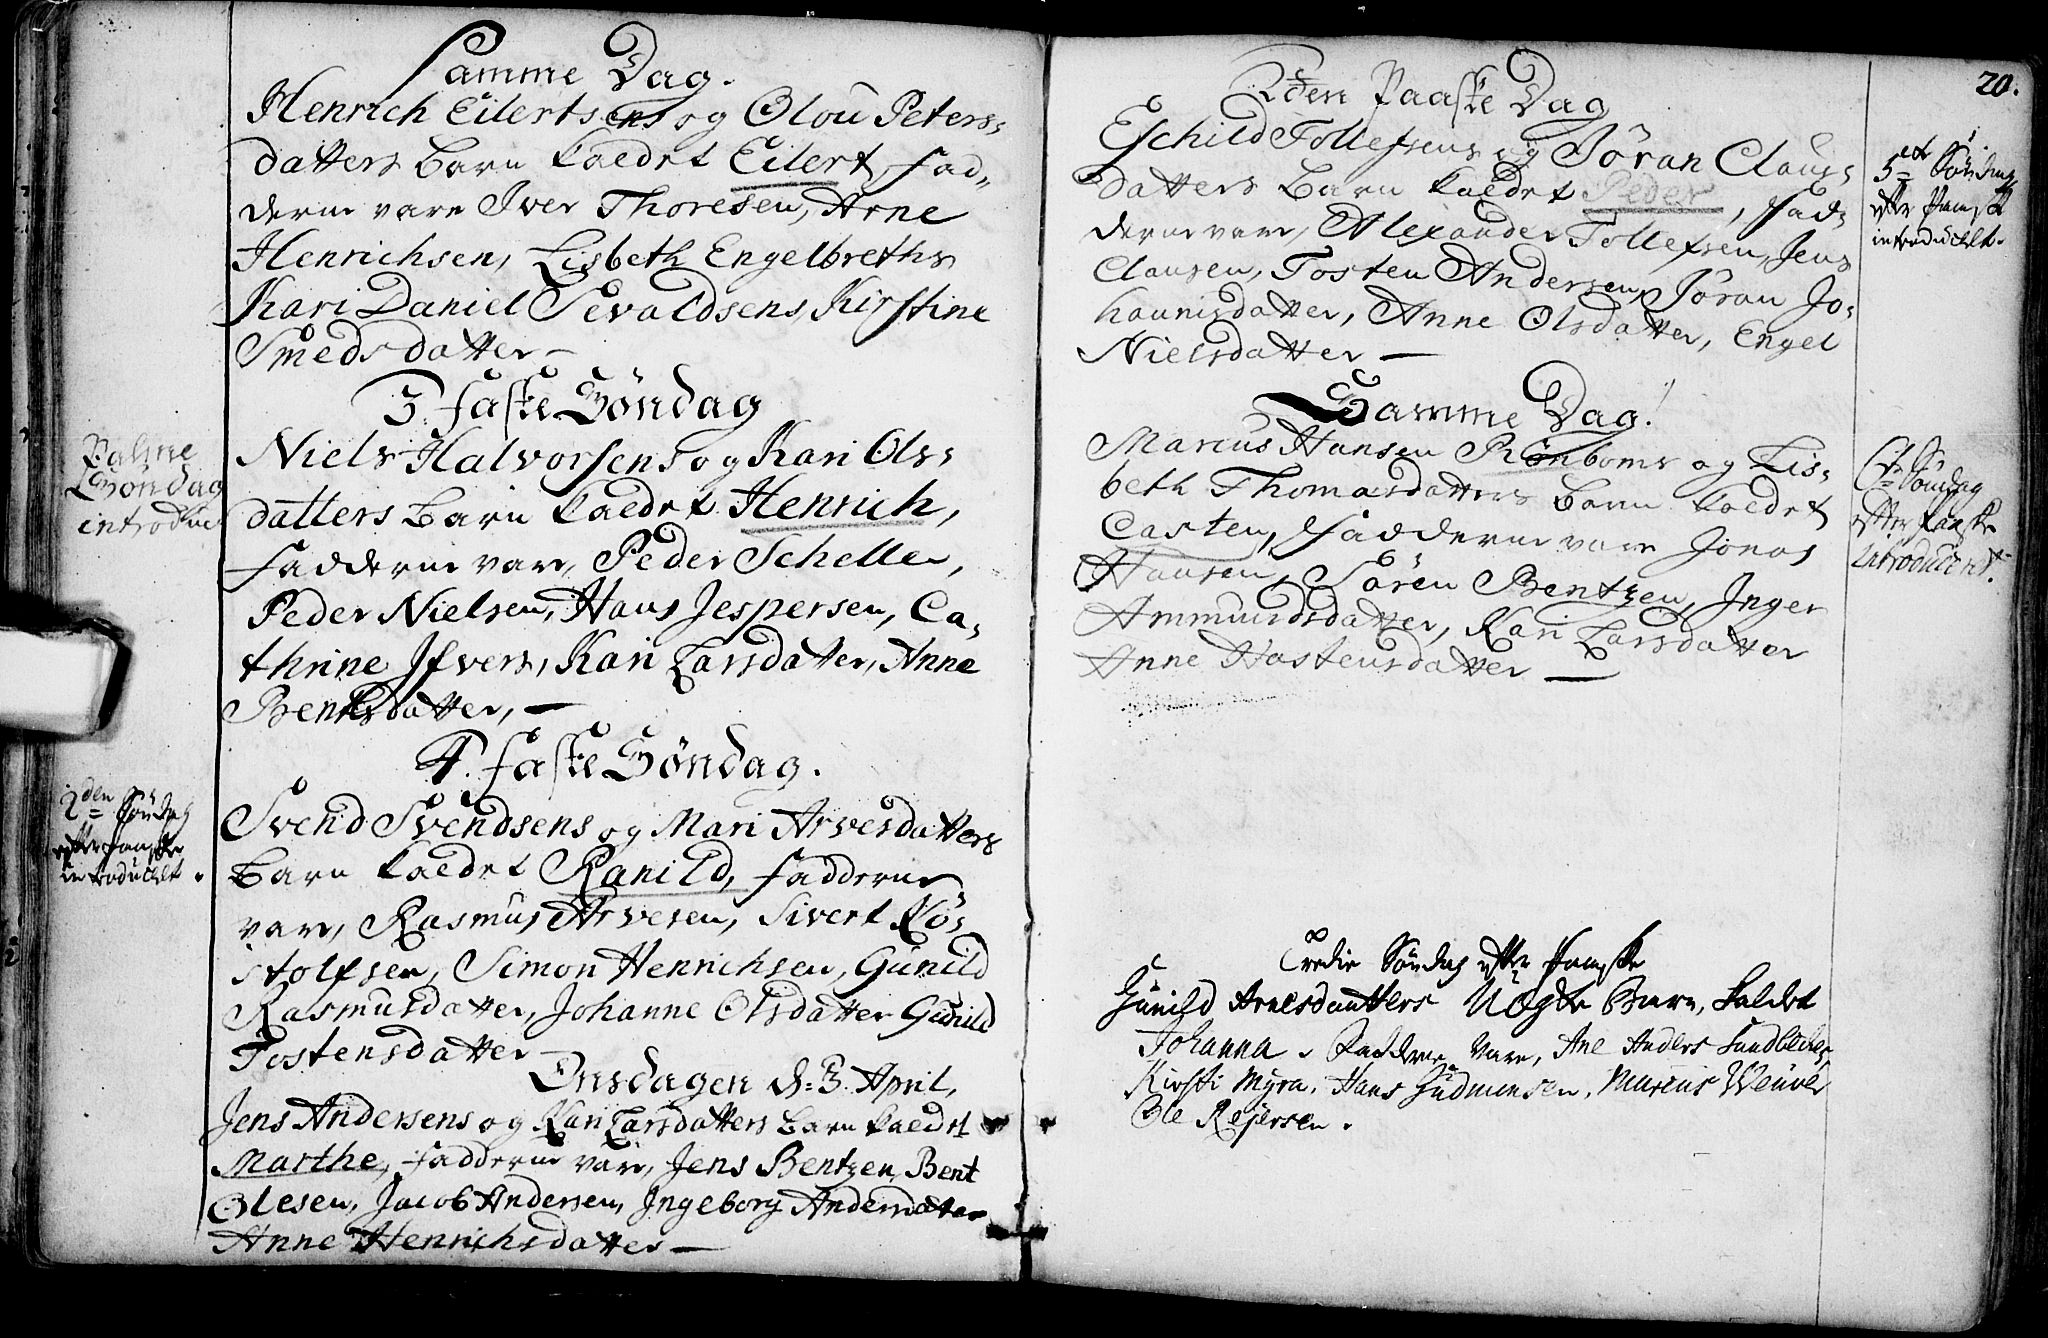 Samme Dag.
Henrich Eilertsens og Olou Peters-
datters Barn kaldet Eilert, Fad-
derne vare Iver Thoresen, Arne
Henrichsen, Lisbeth Engelbreths
Kari Daniel Sevaldsens, Kirstine
Smedsdatter —
3. Faste Söndag
Palme
Söndag
introduc
Niels Halvorsens og Kari Ols-
datters Barn kaldet Henrich,
Fadderne vare, Peder Scheller,
Peder Nielsen, Hans Jespersen, Ca-
thrine Ifvers, Kari Larsdatter, Anne
Bentsdatter, —
4. Faste Söndag.
2den Söndag
efter Paaske
introducert.
Svend Svendsens og Mari Arvesdatters
Barn kaldet Ranild, Fadderne
vare, Rasmus Arvesen, Sivert Kö-
stolfsen, Simon Henrichsen, Gunild
Rasmusdatter, Johanne Olsdatter Gunild
Tostensdatter
Onsdagen d: 3. April,
Jens Andersens og Kari Larsdatters Barn kaldet
Marthe, Fadderne vare, Jens Bentzen, Bent
Olesen, Jacob Andersen, Ingeborg Andersdatter
Anne Henrichsdatter —
20.
2den Paaske Dag
Eschild Tollefsens og Jöran Claus-
datters Barn kaldet Peder, Fad-
derne vare, Alexander Tollefsen, Jens
Clausen, Tosten Andersen, Jöran Jo-
hannisdatter, Anne Olsdatter, Engel
Nielsdatter —
5te Söndag
efter Paaske
introducert.
Samme Dag.
Marcus Hansen Rönboms og Lis-
beth Thomasdatters Barn kaldet
Casten, Fadderne vare Jonas
Hansen, Sören Bentzen, Inger
Ammundsdatter, Kari Larsdatter
Anne Hostensdatter —
Söndag
efter Paaske
Introducert.
Tredie Söndag efter Paaske
Gunild Arnesdautters Uägte Barn, kaldet
Johanna. Fadderne Vare, Ane Anders
Kirsti Myra, Hans Gudmunsen, Marcus Wever
Ole Rejersen.